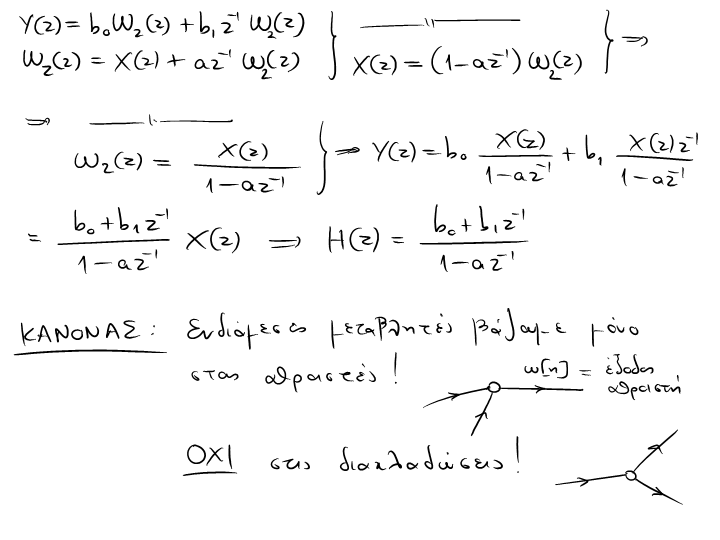 Y(z) = b₀W₂(z) + b₁z⁻¹ W₂(z) } —〃— } ⇒
W₂(z) = X(z) + az⁻¹ W₂(z) } X(z) = (1-az⁻¹) W₂(z)
⇒ —〃—
W₂(z) = X(z) / (1-az⁻¹) } ⇒ Y(z) = b₀ X(z) / (1-az⁻¹) + b₁ X(z)z⁻¹ / (1-az⁻¹)
= (b₀+b₁z⁻¹) / (1-az⁻¹) X(z) ⇒ H(z) = (b₀+b₁z⁻¹) / (1-az⁻¹)
ΚΑΝΟΝΑΣ: Ενδιάμεσες μεταβλητές βάζουμε μόνο
στους αθροιστές! w[n] = έξοδος
αθροιστή
ΟΧΙ στις διακλαδώσεις!